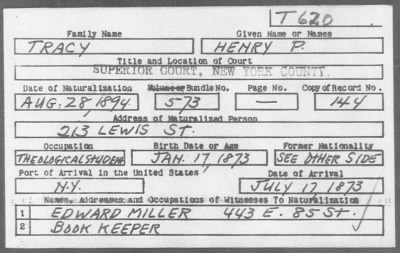 T620
Family Name Given Name or Names
TRACY HENRY P.
Title and Location of Court
SUPERIOR COURT, NEW YORK COUNTY.
Date of Naturalization Volume or Bundle No. Page No. Copy of Record No.
AUG. 28, 1894 573 — 144
Address of Naturalized Person
213 LEWIS ST.
Occupation Birth Date or Age Former Nationality
THEOLOGICAL STUDENT JAN. 17, 1873 SEE OTHER SIDE
Port of Arrival in the United States Date of Arrival
N.Y. JULY 17 1873
Names, Addresses and Occupations of Witnesses To Naturalization
1 EDWARD MILLER 443 E. 85 St.
2 BOOK KEEPER